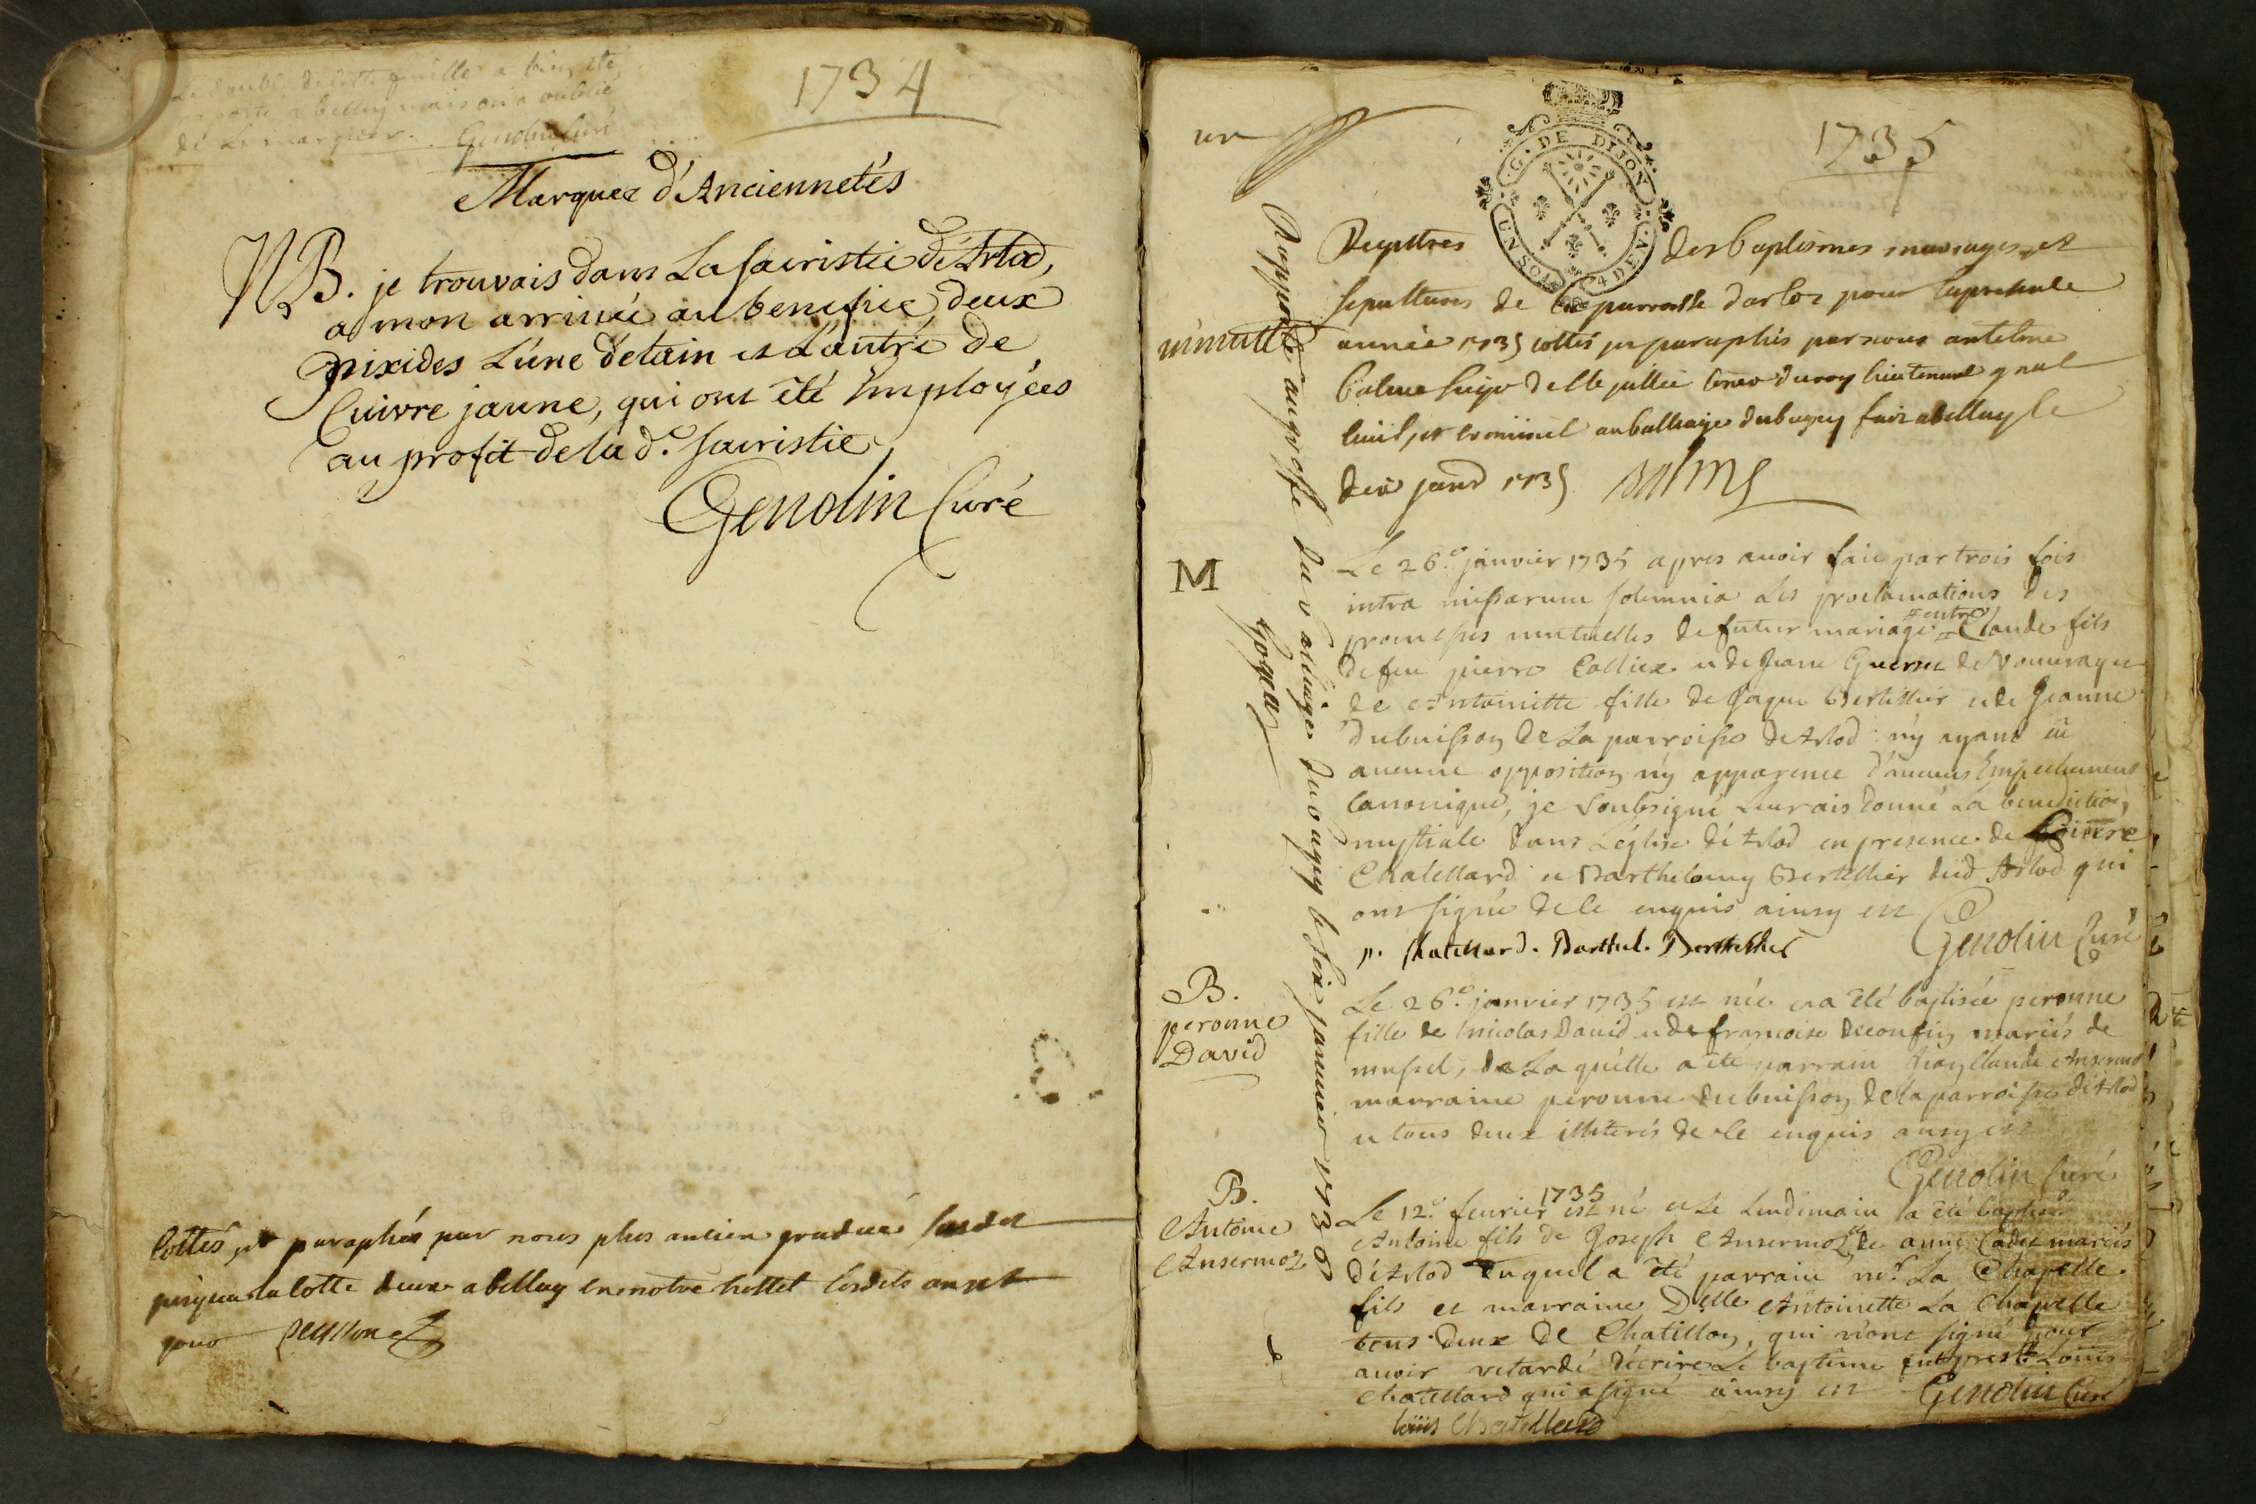 Le double de cette feuille a bien été
porté a belley mais on a oublié
dé le marquer. Genolin Curé
1734
Marques d'Anciennetés
NB. je trouvais dans La sacristie d'Arlod,
a mon arriuée au benefice, deux
pixides L'une detain et L'autre de
Cuivre jaune, qui ont été Employées
au profit de la d.e sacristie,
Genolin Curé
Cottés, et paraphés par nous plus ancien gradué
jusqua la cotte deux a belley en notre hostel
un
1735
G. DE DIJON
UN SOL 4 DEN.
Regittres des baptesmes mariages, et
sepultures de la parroisse darloz pour la presente
minutte
année 1735 cottés et paraphés par nous antelme
balme lieutenant gnal
Ciuil, et criminel au balliage du bugey fait a belley le
janv 1735 Balme
Rapporté au greffe du balliage du bugey le six januier 1736
Goyet
M
Le 26.e janvier 1735 apres auoir fait par trois fois
intra missarum solemnia Les proclamations des
promesses mutuelles de futur mariage entre Claude fils
de feu pierre Colliex et de Jeane de Vouuray et
de Antoinette fille de Jaque Bertellier et de Jeanne
dubuisson de La parroisse de Arlod n'y ayant eü
aucune opposition n'y apparence d'aucuns Empechement
Canonique, je Soubsigné Leur ais donné La benediction
nuptiale dans L'eglise d'Arlod en presence de pierre
Chatellard et Barthelemy Bertellier dud Arlod qui
ont signé de ce enquis ainsy est Genolin Curé
p. Chatellard. Barthel. Bertellier
B.
peronne
David
Le 26.e janvier 1735 est née et a été baptisée peronne
fille de nicolas David et de francoise Decoufin mariés de
mussel, de La quelle a été parrain Claude Ansermoz
marraine peronne dubuisson de la parroisse d'Arlod
et tous deux illiterés de ce enquis ainsy est
Genolin Curé
B.
Antoine
Ansermoz
Le 12.e feurier 1735 est né et Le Lendemain a été baptisé
Antoine fils de Joseph Ansermoz et de anne Cadet mariés
d'Arlod Duquel a été parrain m.r La Chapelle
fils et marraine Delle Antoinette La Chapelle
tous deux de Chatillon, qui n'ont signé pour
auoir retardé d'ecrire Le baptême Louis
Chatellard qui a signé ainsy est Genolin Curé
loüis Chatellard